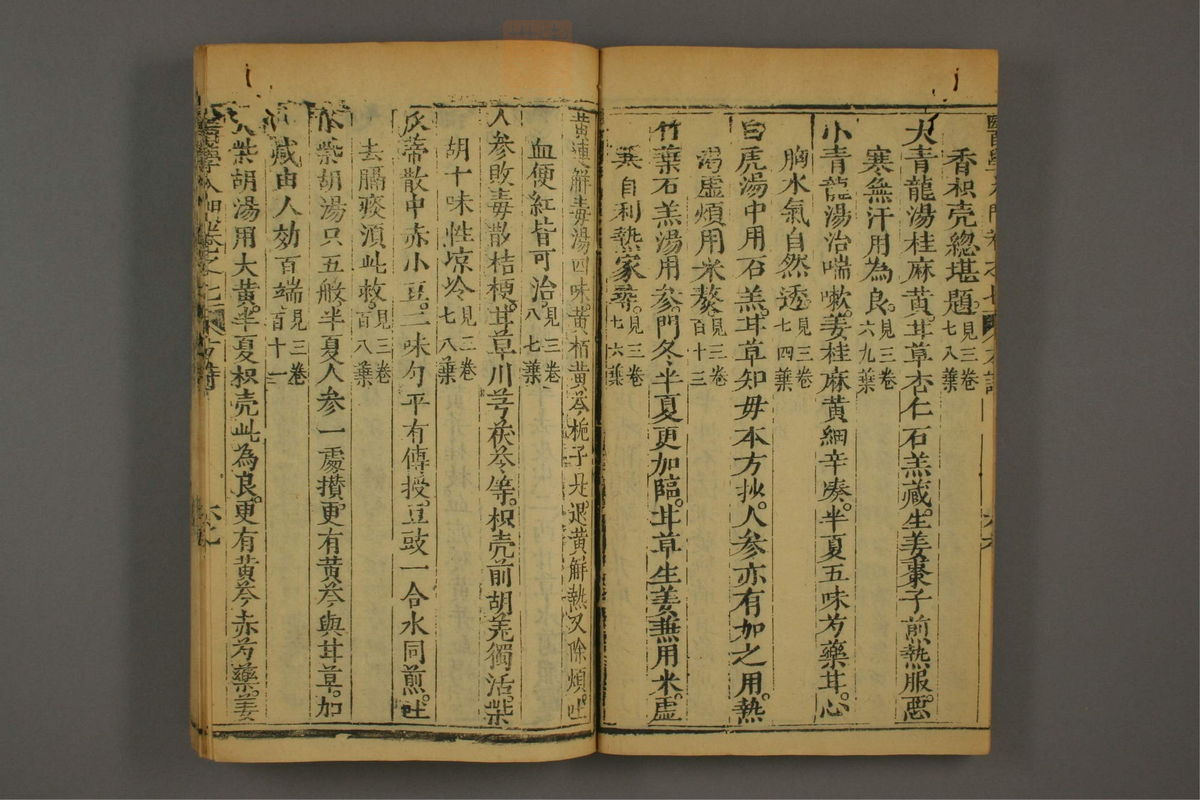 香枳壳總堪題見三卷七八葉
大青龍湯桂麻黄甘草杏仁石羔藏生姜棗子煎熱服悪
寒無汗用為良見三卷六九葉
小青龍湯治喘嗽姜桂麻黄細辛凑半夏五味芍藥甘心
胸水氣自然透見三卷七四葉
白虎湯中用石羔甘草知毋本方抄人參亦有加之用熱
渴虚煩用米熬見三卷百十三
竹葉石羔湯用參門冬半夏更加臨甘草生姜兼用米虚
煩自利熱家尋見三卷七六葉
黄連解毒湯四味黄栢黄芩梔子是退黄解熱又除煩吐
血便紅皆可治見三卷八七葉
人參敗毒散桔梗甘草川芎茯苓等枳壳前胡羗獨活柴
胡十味性凉冷見二卷七八葉
瓜蒂散中赤小豆二味勻平有傳授豆豉一合水同煎吐
去膈痰湏此救見三卷百八葉
小柴胡湯只五般半夏人参一處攅更有黄芩與甘草加
减由人効百端見三卷百十一
大柴胡湯用大黄半夏枳壳此為良更有黄芩赤芍藥姜
醫學入門卷之七
六九